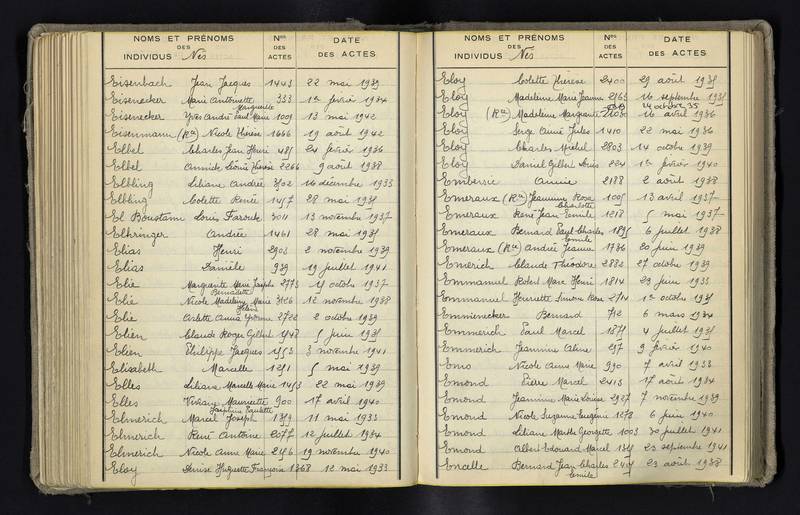 NOMS ET PRÉNOMS DES INDIVIDUS Nés
Nos DES ACTES
DATE DES ACTES
Eisenbach Jean Jacques 1443 22 mai 1939
Eisenecker Marie Antoinette 333 1er février 1934
Marguerite
Eisenecker Yves André Paul Marie 1009 13 mai 1942
Eisenmann (Rn) Nicole Thérèse 1666 19 août 1942
Elbel Charles Jean Henri 485 24 février 1936
Elbel Annick Léonie Thérèse 2266 9 août 1938
Elbling Liliane Andrée 3102 16 décembre 1933
Elbling Colette Renée 1457 28 mai 1935
El Boustami Louis Farouk 3011 13 novembre 1937
Elhringer Andrée 1461 28 mai 1935
Elias Henri 2903 2 novembre 1939
Elias Danièle 939 19 juillet 1941
Elie Marguerite Marie Josèphe 2773 4 octobre 1937
Bernadette
Elie Nicole Madeleine Marie 3126 12 novembre 1938
Hélène
Elie Arlette Anna Yvonne 2722 2 octobre 1939
Elien Claude Roger Gilbert 1548 5 juin 1935
Elien Philippe Jacques 1553 3 novembre 1941
Elisabeth Marcelle 1291 5 mai 1939
Elles Liliane Marcelle Marie 1453 22 mai 1939
Elles Viviane Mauricette 900 17 avril 1940
Joséphine Paulette
Elmerich Marcel Joseph 1359 11 mai 1933
Elmerich René Antoine 2077 12 juillet 1934
Elmerich Nicole Anne Marie 2456 19 novembre 1940
Eloy Denise Huguette Françoise 1368 12 mai 1933
NOMS ET PRÉNOMS DES INDIVIDUS Nés
Nos DES ACTES
DATE DES ACTES
Eloy Colette Thérèse 2400 29 août 1935
Eloy Madeleine Marie Jeanne 2563 16 septembre 1935
14 octobre 35
Eloy (Rn) Madeleine Marguerite 16 avril 1936
Eloy Serge Aimé Jules 1410 22 mai 1936
Eloy Charles Michel 2803 14 octobre 1939
Eloy Daniel Gilbert Louis 224 1er février 1940
Embersie Annie 2188 2 août 1938
Emeraux (Rn) Jeannine Rose 1005 13 avril 1937
Charlotte
Emeraux René Jean Emile 1218 5 mai 1937
Emeraux Bernard Paul Charles 1895 6 juillet 1938
Emile
Emeraux (Rn) Andrée Jeanne 1736 20 juin 1939
Emerich Claude Théodore 2882 27 octobre 1939
Emmanuel Robert Marc Henri 1814 29 juin 1933
Emmanuel Henriette Simone Rose 2714 1er octobre 1935
Emmenecker Bernard 712 6 mars 1934
Emmerich Paul Marcel 1877 4 juillet 1935
Emmerich Jeannine Aline 297 9 février 1940
Emis Nicole Anne Marie 990 7 avril 1933
Emond Pierre Marcel 2413 17 août 1934
Emond Jeannine Marie Louise 2927 7 novembre 1939
Emond Nicole Suzanne Eugénie 1278 6 juin 1940
Emond Liliane Marthe Georgette 1003 30 juillet 1941
Emond Albert Edouard Marcel 1345 23 septembre 1941
Encelle Bernard Jean Charles 2404 23 août 1938
Emile